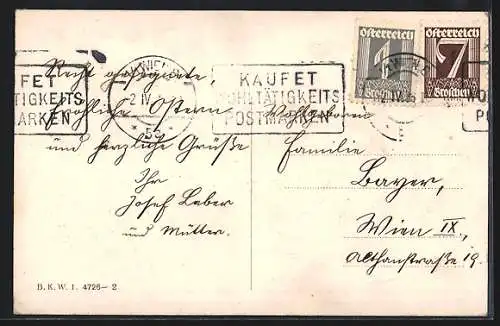 Österreich Österreich
1 7
Groschen Groschen
WIEN
2 IV
* 52 *
FET
TÄTIGKEITS
ARKEN
KAUFET
WOHLTÄTIGKEITS
POSTMARKEN
Recht gesegnete,
fröhliche Ostern
und herzliche Grüße
Ihr
Josef Leber
und Mutter.
Wohlgeboren
Familie
Bayer,
Wien IX.,
Althanstraße 19.
B. K. W. I. 4726–2